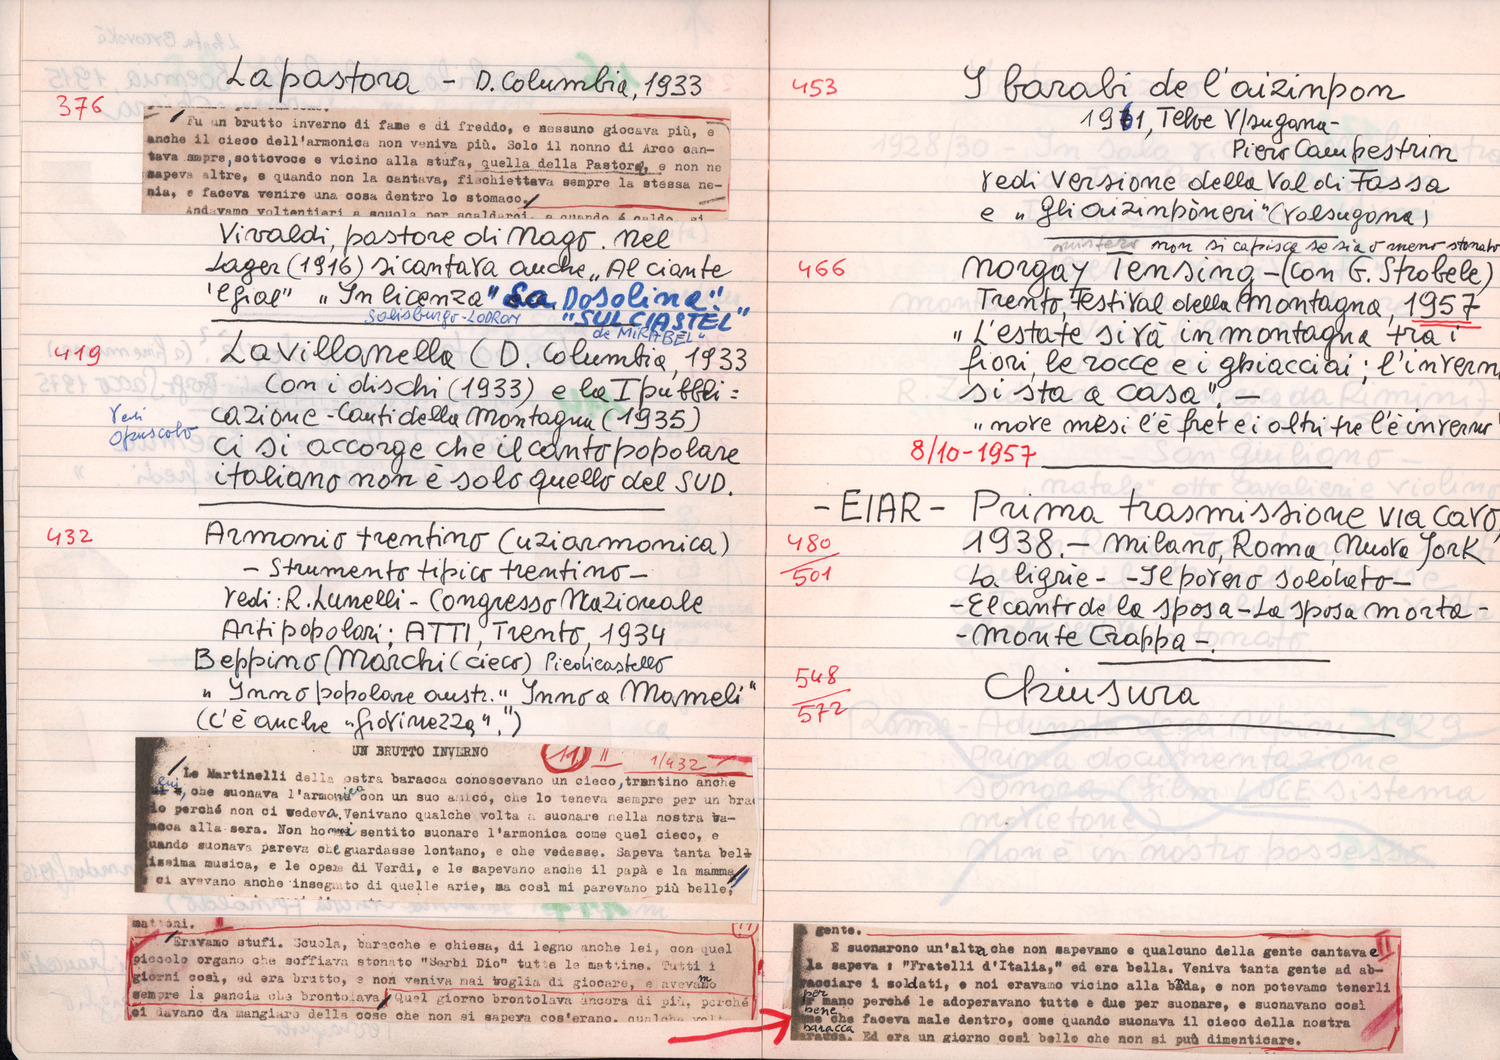 La pastora - D. Columbia, 1933
376
Fu un brutto inverno di fame e di freddo, e nessuno giocava più, e
anche il cieco dell'armonica non veniva più. Solo il nonno di Arco can-
tava sempre, sottovoce e vicino alla stufa, quella della Pastora, e non ne
sapeva altre, e quando non la cantava, fischiettava sempre la stessa ne-
nia, e faceva venire una cosa dentro lo stomaco.
Andavamo volentieri a scuola per scaldarci, e quando é caldo, si
Vivaldi, pastore di Nago. nel
Lager (1916) si cantava anche "Al ciante
'l gial" "In licenza" "La Dosolina".
Salisburgo-LODRON "SULCIASTEL"
de MIRABEL"
419
La Villanella (D. Columbia, 1933
Con i dischi (1933) e la I pubbli=
cazione - Canti della Montagna (1935)
vedi
opuscolo
ci si accorge che il canto popolare
italiano non è solo quello del SUD.
432
Armonio trentino (uziarmonica)
- Strumento tipico trentino -
vedi: R. Lunelli - Congresso Nazionale
Arti popolari; ATTI, Trento, 1934
Beppino Marchi (cieco) Piedicastello
"Inno popolare austr." Inno a Mameli"
(c'è anche "giovinezza".)
UN BRUTTO INVERNO
11 II 1/432
Le Martinelli della nostra baracca conoscevano un cieco, trentino anche
lui, che suonava l'armonica con un suo amico, che lo teneva sempre per un brac
io perché non ci vedeva. Venivano qualche volta a suonare nella nostra ba-
racca alla sera. Non ho mai sentito suonare l'armonica come quel cieco, e
quando suonava pareva che guardasse lontano, e che vedesse. Sapeva tanta bell
issima musica, e le opere di Verdi, e le sapevano anche il papà e la mamma
e ci avevano anche insegnato di quelle arie, ma così mi parevano più belle,
mattoni.
Eravamo stufi. Scuola, baracche e chiesa, di legno anche lei, con quel
piccolo organo che soffiava stonato "Serbi Dio" tutte le mattine. Tutti i
giorni così, ed era brutto, e non veniva mai voglia di giocare, e avevamo
sempre la pancia che brontolava. Quel giorno brontolava ancora di più, perché
ci davano da mangiare della cose che non si sapeva cos'erano, qualche volt
453
I barabi de l'aizinpon
1961, Telve V/sugana-
Piero Campestrin
vedi versione della Val di Fassa
e "Gli aizinpòneri" (Valsugana)
mistero non si capisce se sia o meno stonato
466
Norgay Tensing - (con G. Strobele)
Trento, Festival della Montagna, 1957
"L'estate si và in montagna tra i
fiori, le rocce e i ghiacciai; l'invern
si sta a casa". -
"nove mesi l'è fret e i oltri tre l'è inverno"
8/10-1957
- EIAR - Prima trasmissione via cavo
480
501
1938. - Milano, Roma, Nuova York
La ligrie - - Il povero soldato -
- El canto de la sposa - La sposa morta -
- Monte Grappa -.
548
572
Chiusura
a gente.
E suonarono un'altra che non sapevamo e qualcuno della gente cantava e
la sapeva : "Fratelli d'Italia," ed era bella. Veniva tanta gente ad ab-
racciare i soldati, e noi eravamo vicino alla banda, e non potevamo tenerli
per mano perché le adoperavano tutte e due per suonare, e suonavano così
bene che faceva male dentro, come quando suonava il cieco della nostra
baracca. Ed era un giorno così bello che non si può dimenticare.